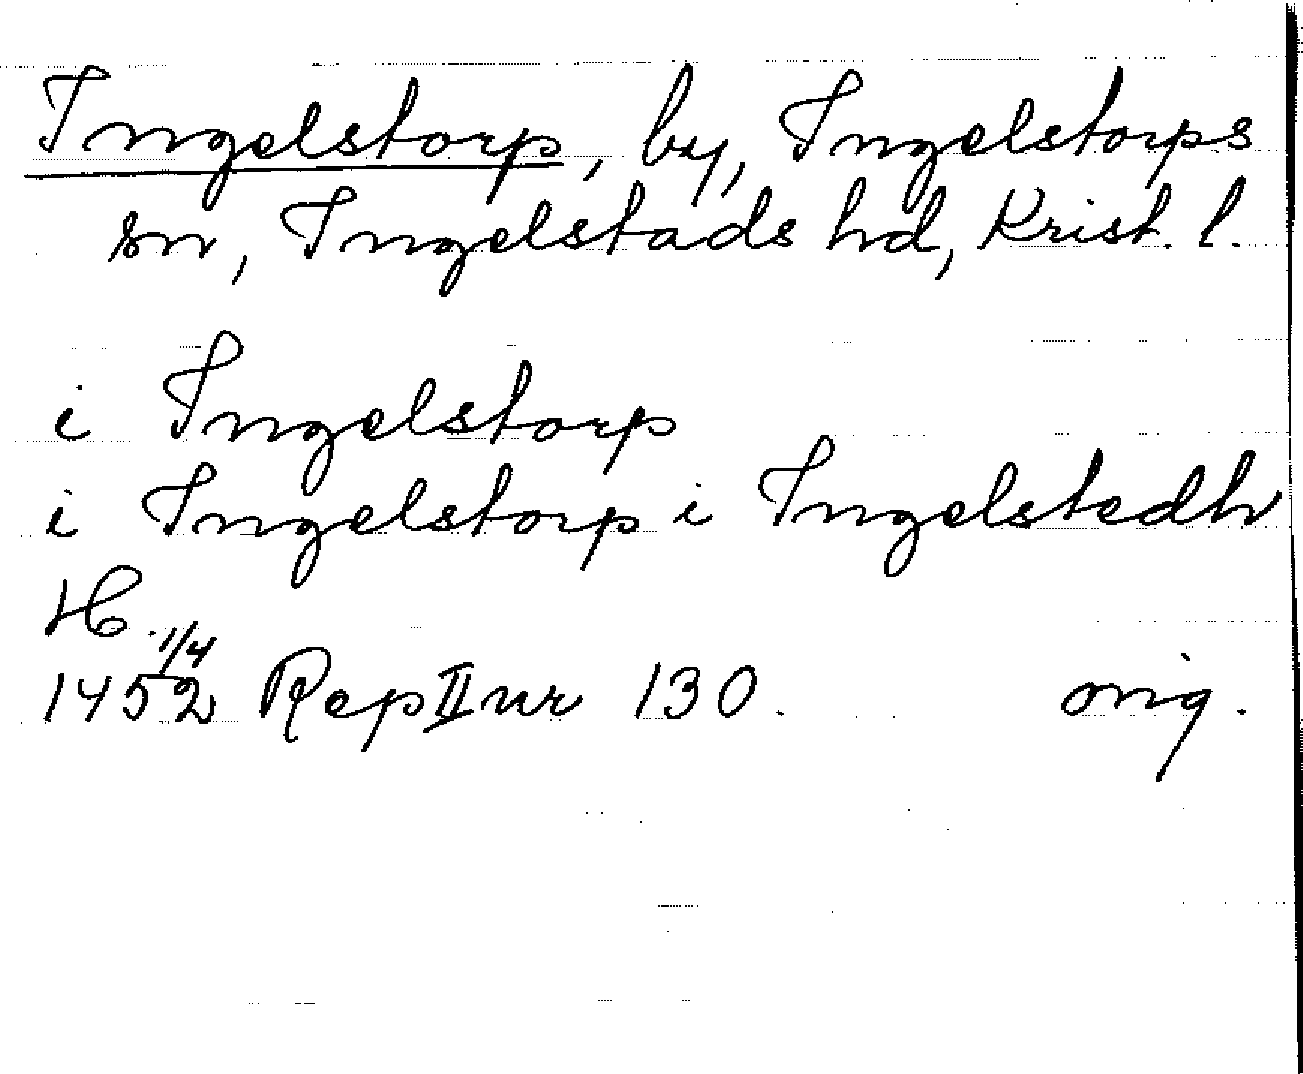 Ingelstorp, by, Ingelstorps
sn, Ingelstads hd, Krist. l.
i Ingelstorp
i Ingelstorp i Ingelstedh
H.
1452 1/4 Rep II nr 130. orig.